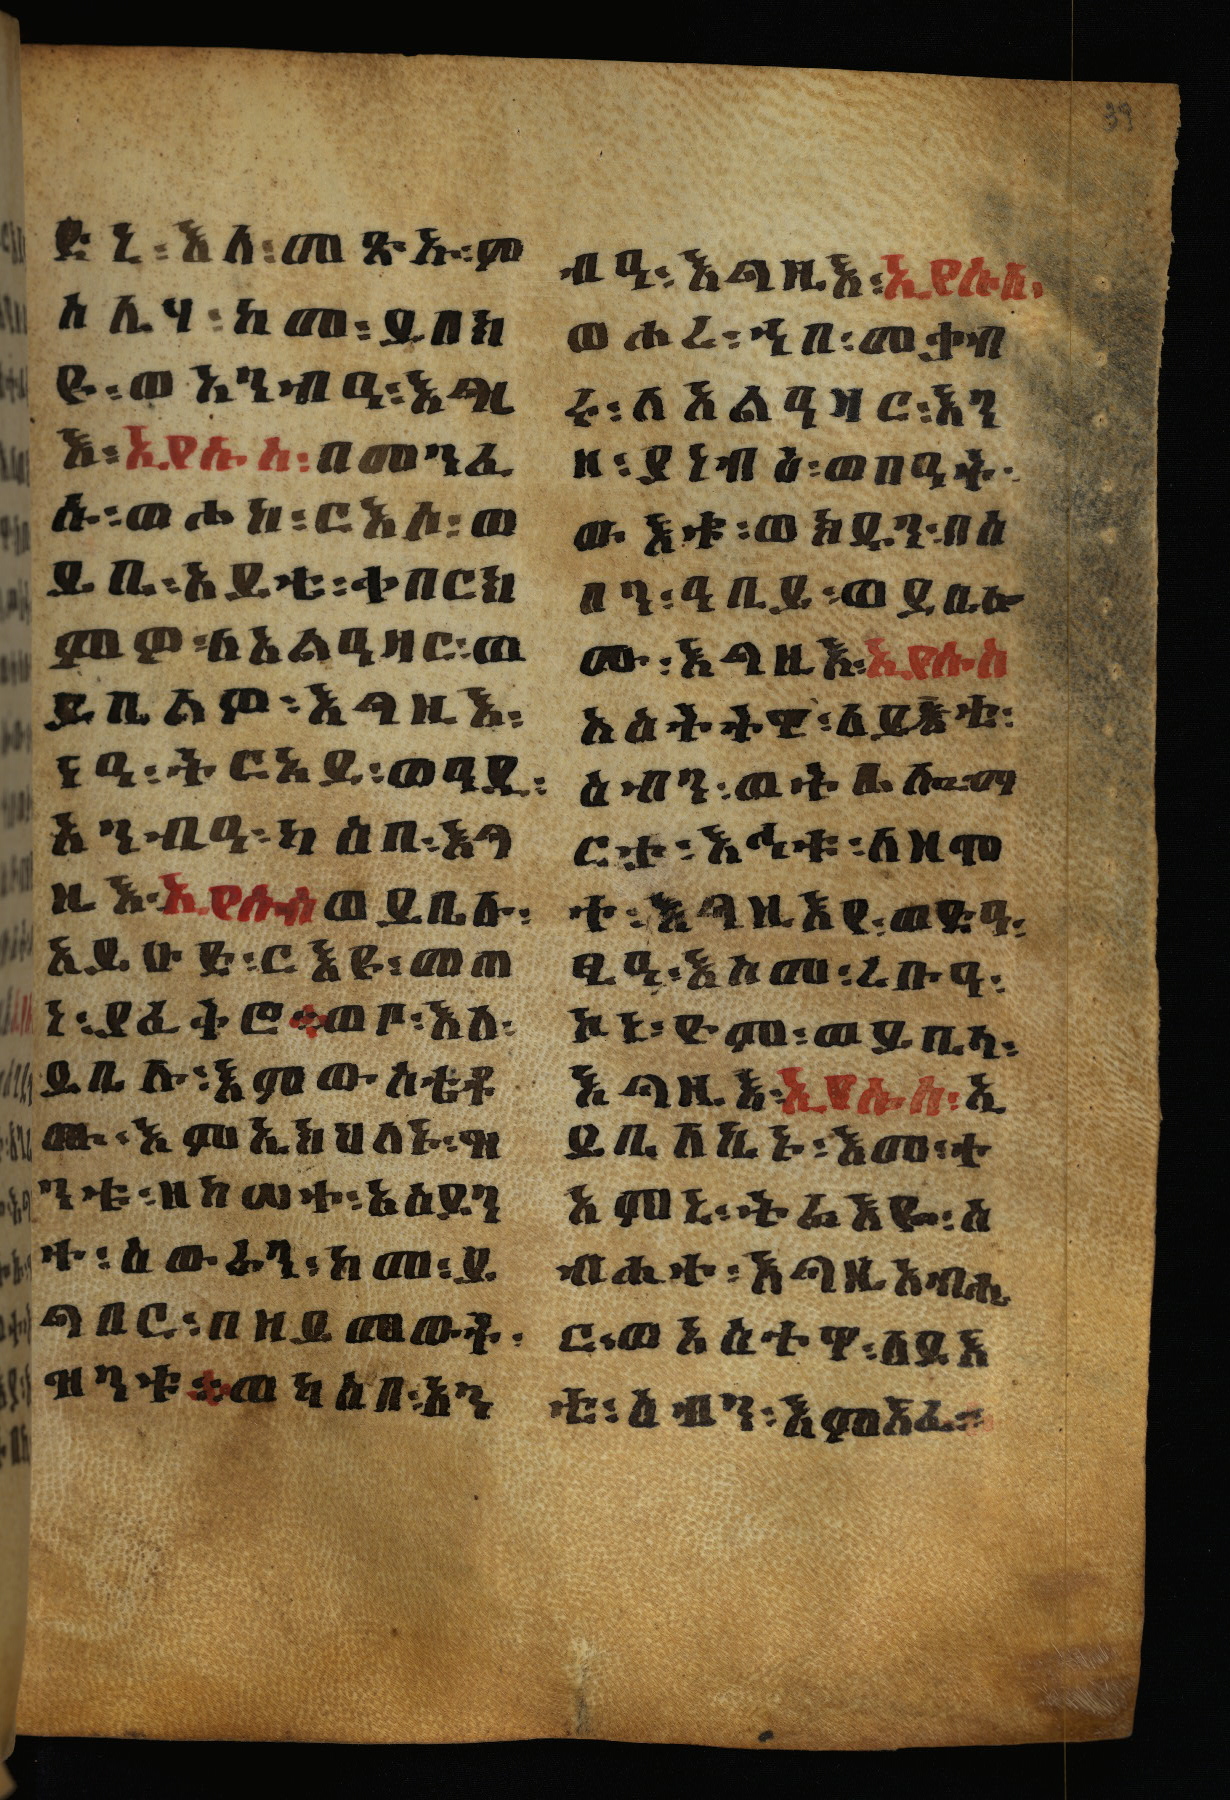 ድኅ፡እለ፡መጽኡ፡ም
ስሌሃ፡ከመ፡ይበክ
ዩ፡ወአንብዐ፡እግዚ
እ፡ኢየሱስ፡በመንፈ
ሱ፡ወሖከ፡ርእሰ፡ወ
ይቤ፡አይቴ፡ቀበርክ
ምዎ፡ለአልዓዛር፡ወ
ይቤልዎ፡እግዚእ፡
ነዓ፡ትርአይ፡ወባዪ፡
አንብዐ፡ካዕበ፡እግ
ዚእ፡ኢየሱስ፡ወይቤሉ፡
አይሁድ፡ርእዩ፡መጠ
ነ፡ያፈቅሮ፡ወቦ፡እለ፡
ይቤሉ፡እምውስቴቶ
ሙ፡እምኢክህለኑ፡ዝ
ንቱ፡ዘከሠተ፡አዕይን
ተ፡ዕውራን፡ከመ፡ይ
ግበር፡በዘይመውት፡
ዝንቱ፡ወካዕበ፡አን
ብዓ፡እግዚእ፡ኢየሱስ፡
ወሖረ፡ኀበ፡መቃብ
ሩ፡ለአልዓዛር፡እን
ዘ፡ይነብዕ፡ወበዓት፡
ውእቱ፡ወክዳን፡በዕ
በን፡ዓቢይ፡ወይቤሎ
ሙ፡እግዚእ፡ኢየሱስ
አዕትትዋ፡ለይእቲ፡
ዕብን፡ወትቤሎ፡ማ
ርታ፡እኅቱ፡ለዘሞ
ተ፡እግዚእየ፡ወድዓ፡
ፄዓ፡እስመ፡ረቡዓ፡
አነ፡ዮም፡ወይቤላ፡
እግዚእ፡ኢየሱስ፡ኢ
ይቤለኪኑ፡እመ፡ተ
አምኒ፡ትሬእዪ፡ስ
ብሐተ፡እግዚአብሔ
ር፡ወአዕተትዋ፡ለይእ
ቲ፡ዕብን፡እምአፈ፡፡